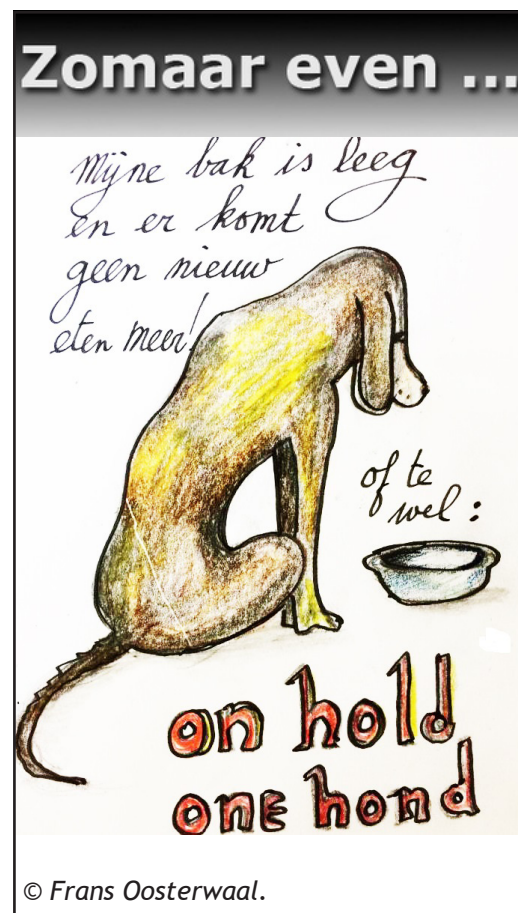 Zomaar even ...
Mijne bak is leeg
en er komt
geen nieuw
eten meer!
of te
wel :
on hold
one hond
© Frans Oosterwaal.